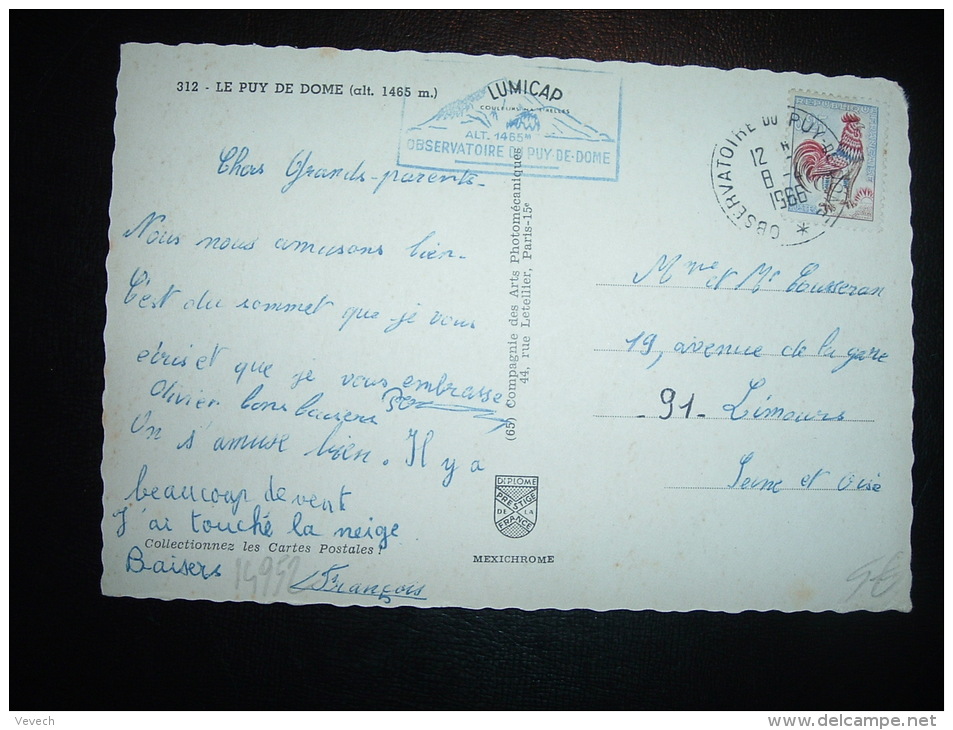 312 - LE PUY DE DOME (alt. 1465 m.)
LUMICAP
ALT. 1465M
OBSERVATOIRE DU PUY-DE-DOME
OBSERVATOIRE DU PUY-DE-DOME
12 H
8 -
1966
Chers Grands-parents-
Nous nous amusons bien-
C'est du sommet que je vous
écris et que je vous embrasse
Olivier bons baisers
On s'amuse bien. Il y a
beaucoup de vent
J'ai touché la neige
Collectionnez les Cartes Postales !
Baisers
François
14952
(65) Compagnie des Arts Photomécaniques
44, rue Letellier, Paris-15e
DIPLOME
PRESTIGE
DE LA
FRANCE
MEXICHROME
Mme et Mr
19, avenue de la gare
- 91 - Limours
Seine et Oise
Vevech
http://www.delcampe.net